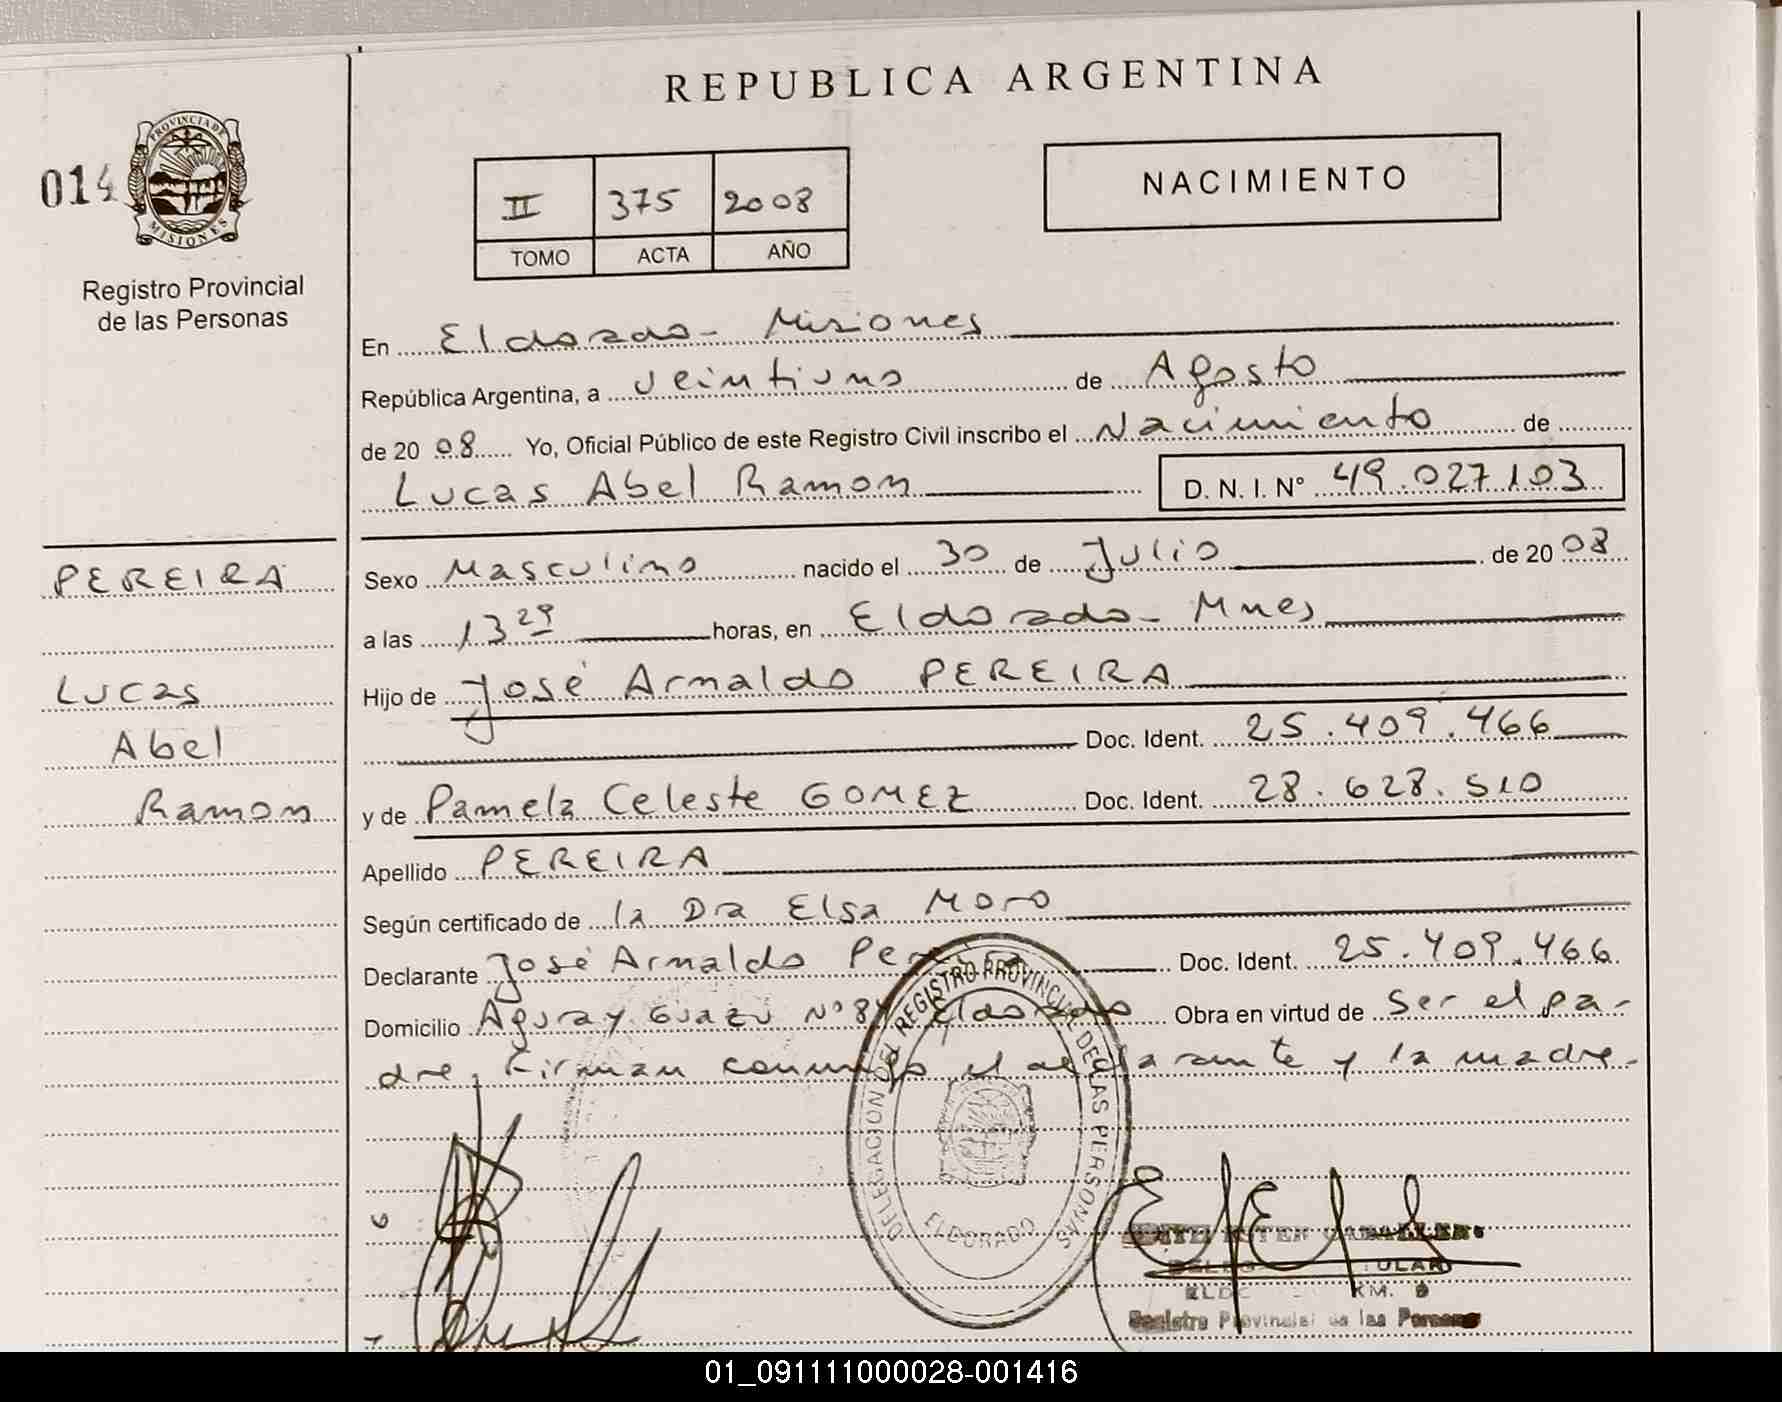 REPUBLICA ARGENTINA
014
PROVINCIA DE
MISIONES
Registro Provincial
de las Personas
II 375 2008
TOMO ACTA AÑO
NACIMIENTO
En Eldorado - Misiones
República Argentina, a veintiuno de Agosto
de 20 08 Yo, Oficial Público de este Registro Civil inscribo el Nacimiento de
Lucas Abel Ramon D. N. I. N° 49.027.103
PEREIRA
Lucas
Abel
Ramon
Sexo Masculino nacido el 30 de Julio de 20 08
a las 13 29 horas, en Eldorado - Mnes
Hijo de José Arnaldo PEREIRA
Doc. Ident. 25.409.466
y de Pamela Celeste GOMEZ Doc. Ident. 28.628.510
Apellido PEREIRA
Según certificado de la Dra Elsa Moro
Declarante José Arnaldo Doc. Ident. 25.409.466
Domicilio Aguray Guazu N° Eldorado Obra en virtud de Ser el pa-
dre, Firman conmigo el declarante y la madre-
DELEGACION DEL REGISTRO PROVINCIAL DE LAS PERSONAS
ELDORADO
KM. 9
Registro Provincial de las Personas
01_091111000028-001416